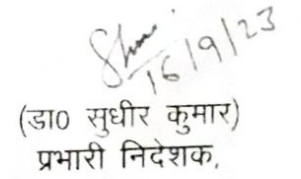 16/9/23
(डा0 सुधीर कुमार)
प्रभारी निदेशक,